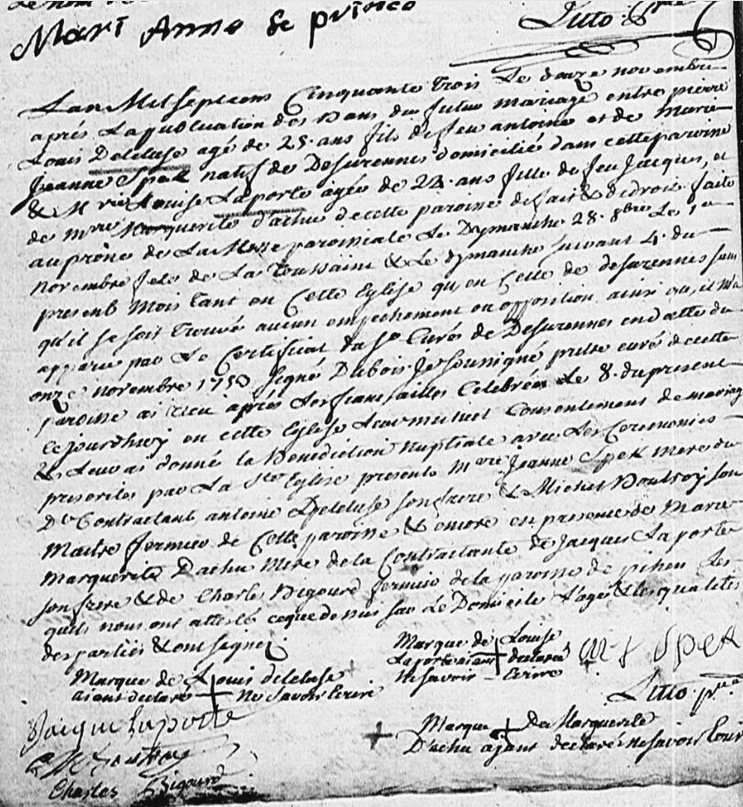 Mari Anne de princo
Litto. ptre
L'an Mil sept cens Cinquante trois Le douze novembre
après La publication des Bans du futur mariage entre pierre
Louis Deleluse agé de 25. ans fils de feu antoine et de Marie
Jeanne Spek natif de Desurennes domicilié dans cette paroisse
& M.rie Louise Laporte agée de 22. ans fille de feu Jacques, et
de m.rie Marguerite d'achu de cette paroisse de fait & de droit faite
au prône de La Messe paroissiale Le Dymanche 28. 8bre Le 1er
novembre fete de La Toussaint & Le dymanche suivant 4. du
present mois tant en Cette Eglise qu'en Celle de desurennes sans
qu'il se soit trouvé aucun empechement ou opposition ainsi qu'il m'a
apparu par Le Certificat du Sr Curé de Desurennes en datte du
onze novembre 1753 signé Dubois Je soussigné prestre curé de cette
paroisse ai reçu après Les fiansailles Celebrées Le 8. du present
Ce jourdhuy en cette Eglise Leur mutuel Consentement de mariage
& Leur ai donné la Benediction nuptiale avec Les Ceremonies
prescrites par La Ste Eglise presents m.rie Jeanne Spek mere du
Dt Contractant antoine Deleluse son frere & Michel son
Maitre fermier de Cette paroisse & encore en presence de Marie
Marguerite Dachu Mere de la Contractante de Jacques Laporte
son frere & de Charles Bigourd fermier de la paroisse de pihen Les
quels nous ont attesté ce que dessus sur Le Domicile L'age & les qualités
des parties & ont signé
Marque de Louis deleluse
aiant declaré ne savoir Ecrire
Marque de Louise
Laporte aiant declaré
ne savoir Ecrire
Spek
Litto. ptre
Jacque Laporte
Marque de Marguerite
D'achu ajant declaré ne savoir Ecrire
Charles Bigourd